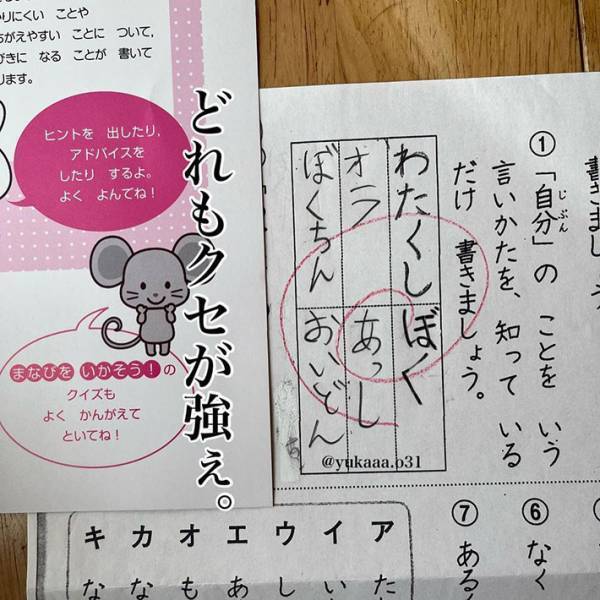 りにくい ことや
ちがえやすい ことに ついて,
びきに なる ことが 書いて
ります。
ヒントを 出したり,
アドバイスを
したり するよ。
よく よんでね!
まなびを いかそう!の
クイズも
よく かんがえて
といてね!
どれもクセが強ぇ。
書きましょう
① 「自分」の ことを いう
じぶん
言いかたを、知って いる
だけ 書きましょう。
わたくし
ぼく
オラ
あっし
ぼくちん
おいどん
@yukaaa.o31
⑥ なく
⑦ ある
ア た
イ い
ウ し
エ あ
オ も
カ な
キ な